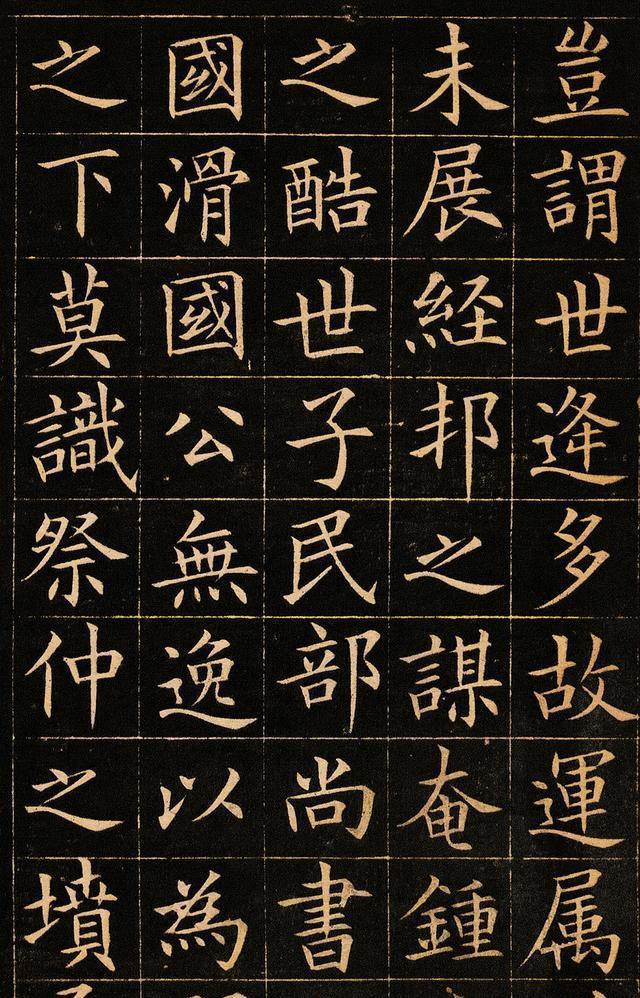 豈謂世逢多故運属
未展経邦之謀奄鍾
之酷世子民部尚書
國滑國公無逸以為
之下莫識祭仲之墳